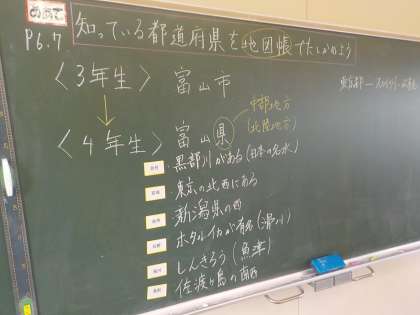 めあて
P6.7 知っている都道府県を地図帳でたしかめよう
〈3年生〉 富山市
〈4年生〉 富山県
中部地方
(北陸地方)
黒部川がある(日本の名水)
東京の北西にある
新潟県の西
ホタルイカが有名(滑川)
しんきろう(魚津)
佐渡ヶ島の南西
東京都